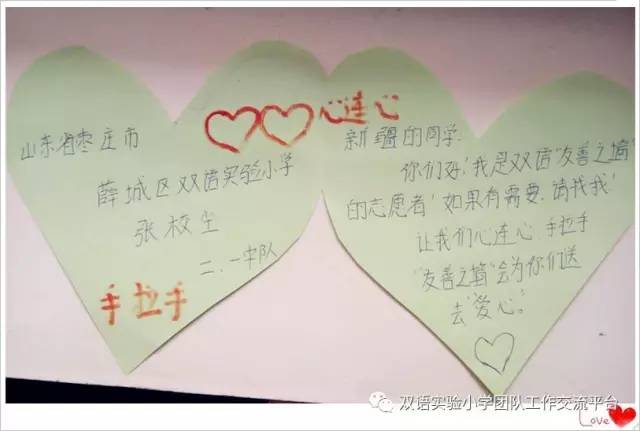 心连心
山东省枣庄市
薛城区双语实验小学
二.一中队
手拉手
新疆的同学:
你们好!我是双语"友善之墙"
的志愿者!如果有需要,请找我!
让我们心连心,手拉手
"友善之墙"会为你们送
去"爱心"。
双语实验小学团队工作交流平台
Love